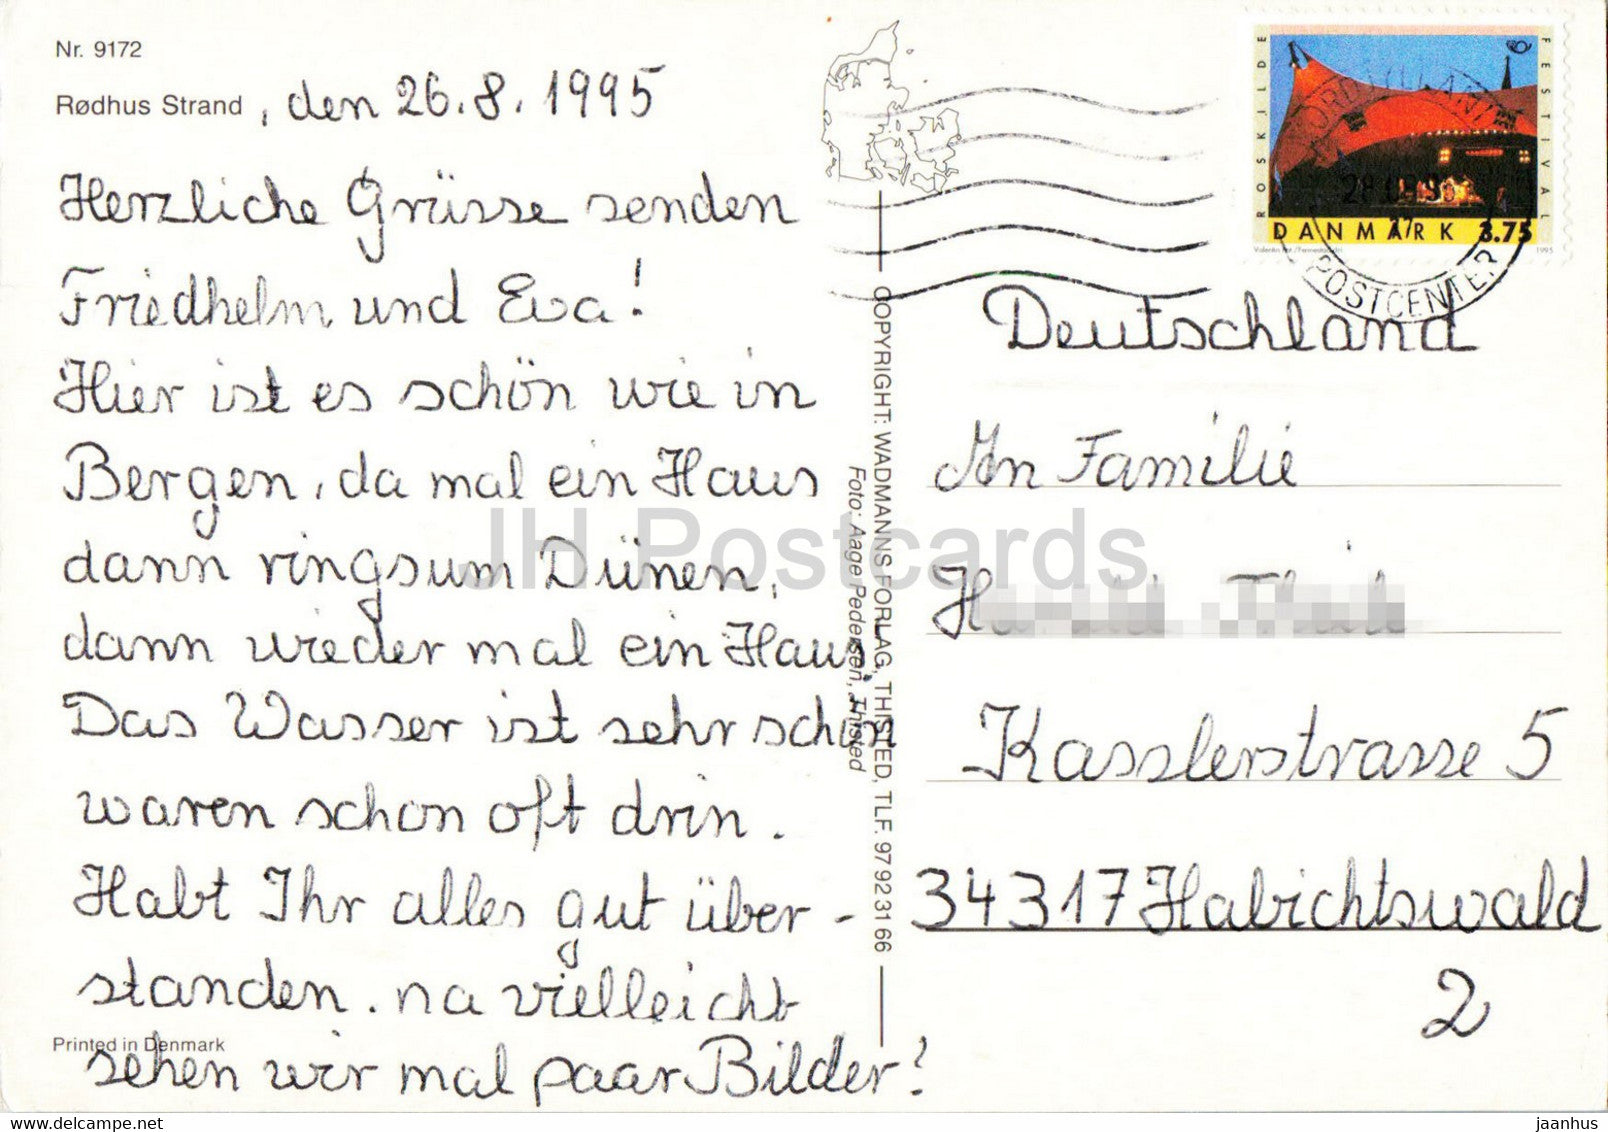 Nr. 9172
Rødhus Strand, den 26.8.1995
Herzliche Grüsse senden
Friedhelm und Eva!
Hier ist es schön wie in
Bergen, da mal ein Haus
dann ringsum Dünen,
dann wieder mal ein Haus.
Das Wasser ist sehr schön
waren schon oft drin.
Habt Ihr alles gut über-
standen. na vielleicht
sehen wir mal paar Bilder?
Printed in Denmark
COPYRIGHT: WADMANNS FORLAG, THISTED, TLF. 97 92 31 66
Foto: Aage Pedersen, Thisted
ROSKILDE
FESTIVAL
DANMARK 3.75
1995
POSTCENTER
Deutschland
An Familie
Kasslerstrasse 5
34317 Habichtswald
2
JH Postcards
https://www.delcampe.net
jaanhus